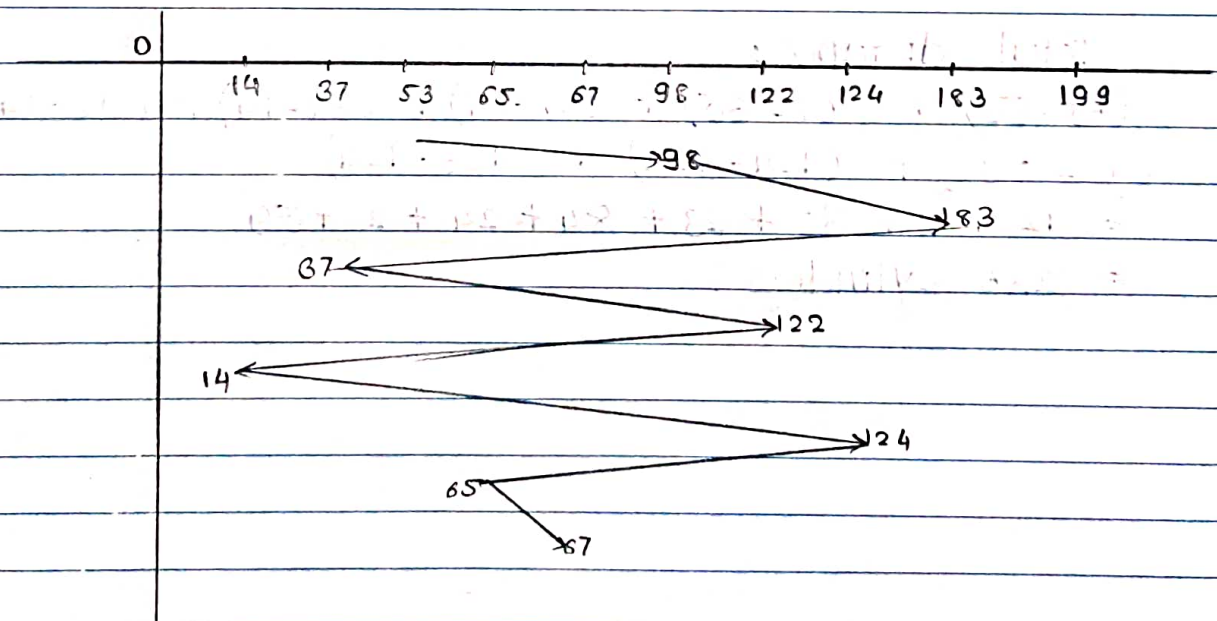 0
14 37 53 65. 67 98 122 124 183 199
98
183
37
122
14
124
65
67